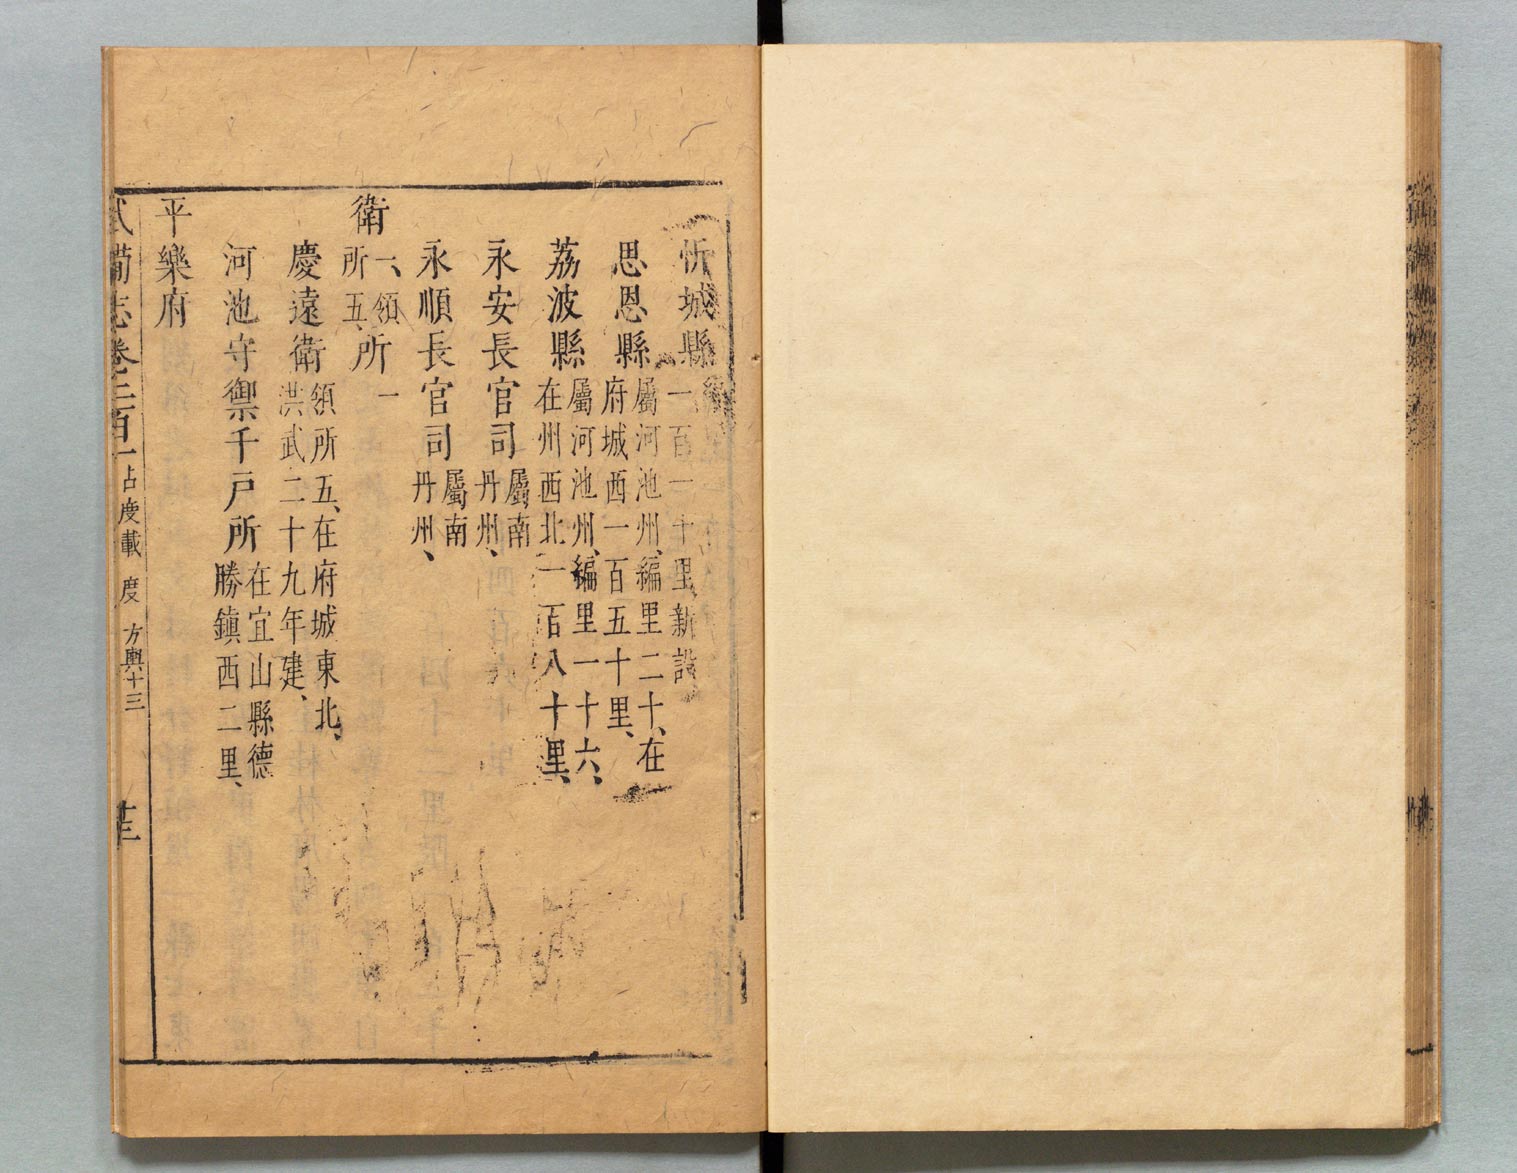 忻城縣一百一十里新設
思恩縣屬河池州、編里二十、在府城西一百五十里、
荔波縣屬河池州、編里一十六、在州西北一百八十里、
永安長官司屬南丹州、
永順長官司屬南丹州、
衛一、領所五、所一
慶遠衛領所五、在府城東北、洪武二十九年建、
河池守禦千戶所在宜山縣德勝鎮西二里、
平樂府
武備志卷三百一 占度載 度 方輿十三 十三